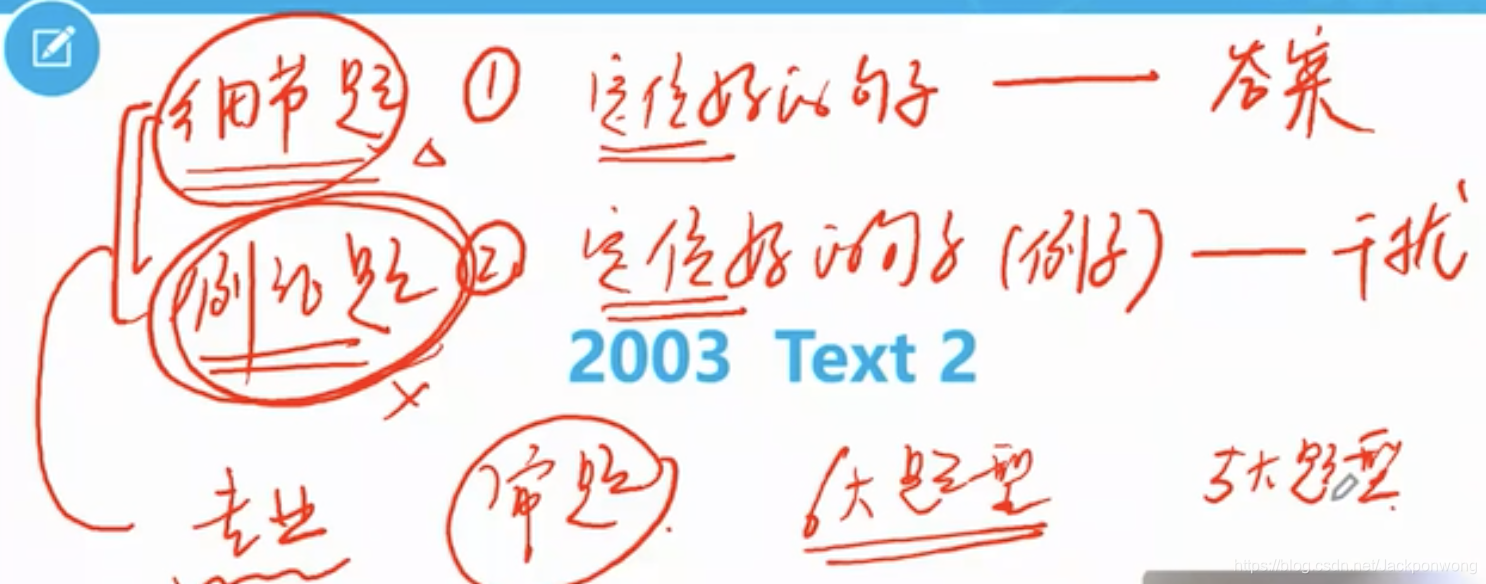 细节题 ① 定位好的句子 — 答案
例证题 ② 定位好的句子(例子) — 干扰
2003 Text 2
专业 审题 6大题型 5大题型
https://blog.csdn.net/Jackponwong